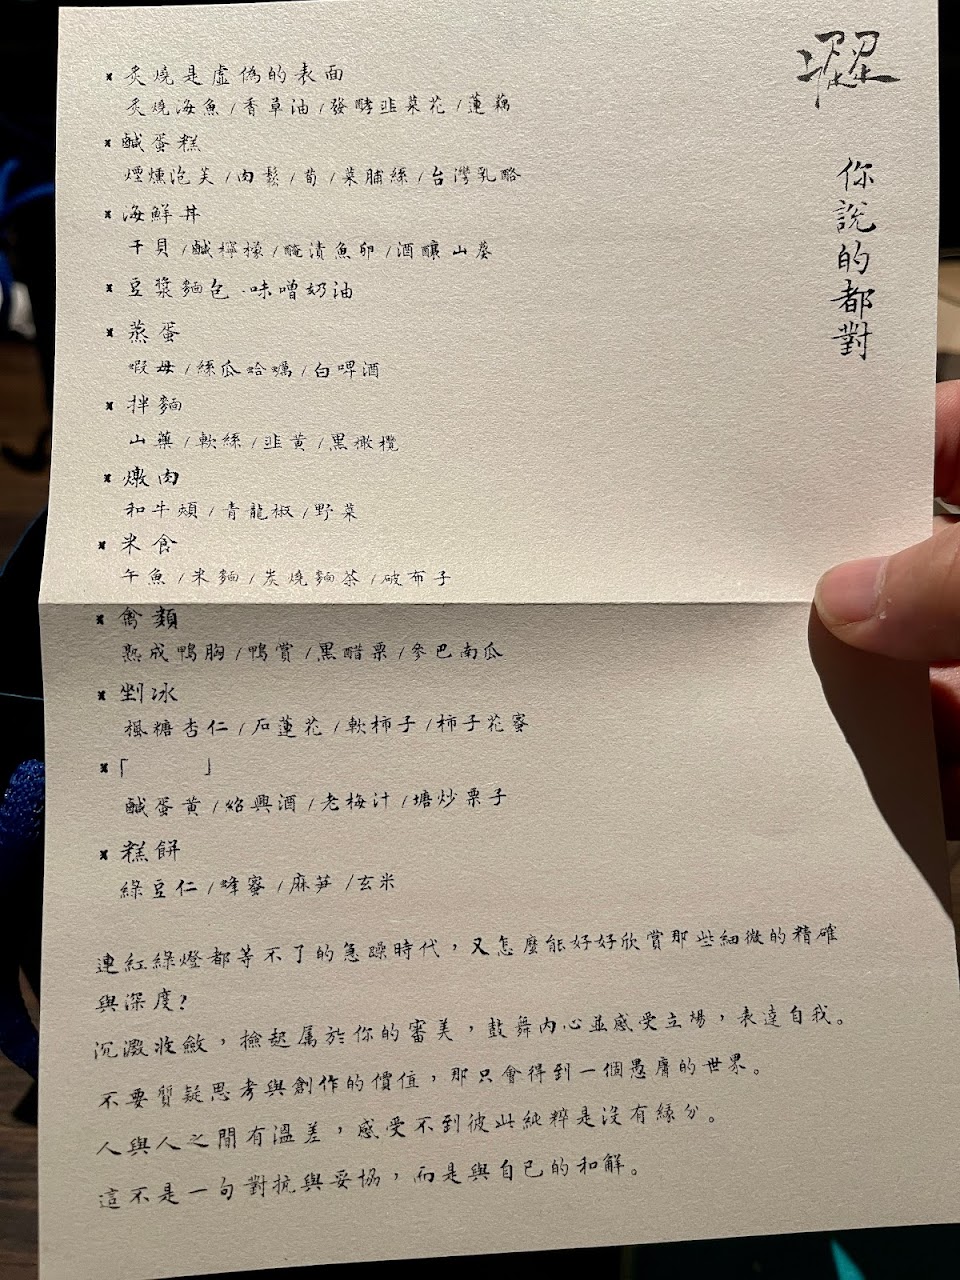 澀
你說的都對
炙燒是虛偽的表面
炙燒海魚/香草油/發酵韭菜花/蓮藕
鹹蛋糕
煙燻泡芙/肉鬆/荀/菜脯絲/台灣乳酪
海鮮丼
干貝/鹹檸檬/醃漬魚卵/酒釀山葵
豆漿麵包·味噌奶油
蒸蛋
蝦母/絲瓜蛤蠣/白啤酒
拌麵
山藥/軟絲/韭黃/黑橄欖
燉肉
和牛頰/青龍椒/野菜
米食
午魚/米麵/炭燒麵茶/破布子
禽類
熟成鴨胸/鴨賞/黑醋栗/參巴南瓜
剉冰
楓糖杏仁/石蓮花/軟柿子/柿子花蜜
「 」
鹹蛋黃/紹興酒/老梅汁/塘炒栗子
糕餅
綠豆仁/蜂蜜/麻芛/玄米
連紅綠燈都等不了的急躁時代，又怎麼能好好欣賞那些細微的精確
與深度?
沉澱收斂，撿起屬於你的審美，鼓舞內心並感受立場，表達自我。
不要質疑思考與創作的價值，那只會得到一個愚庸的世界。
人與人之間有溫差，感受不到彼此純粹是沒有緣分。
這不是一句對抗與妥協，而是與自己的和解。